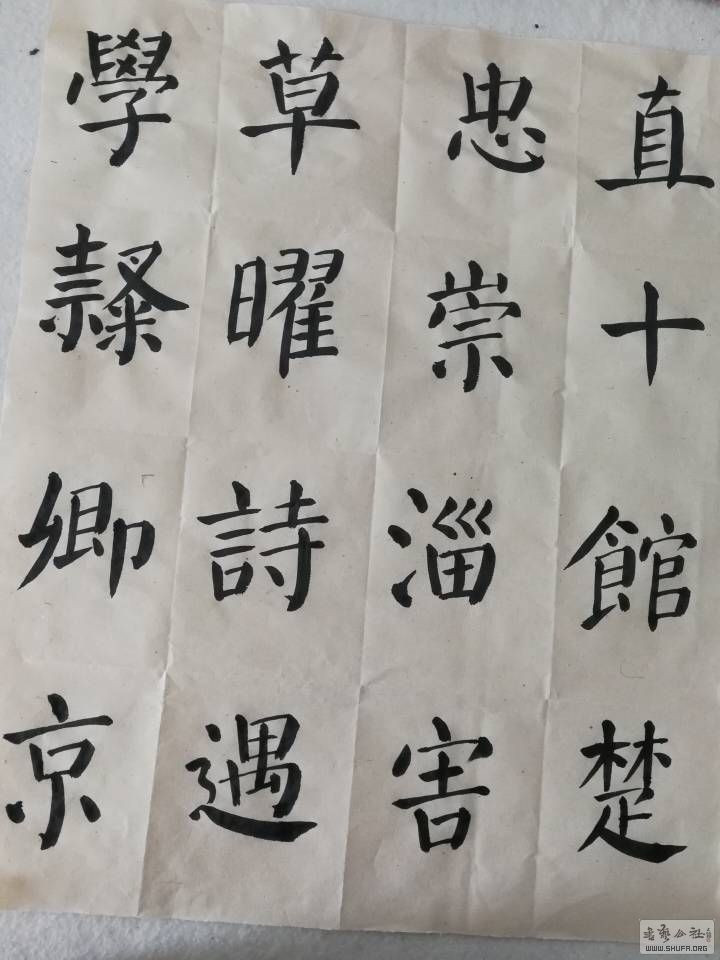 直十館楚
忠崇淄害
草曜詩遇
學隸卿京
书艺公社
WWW.SHUFA.ORG